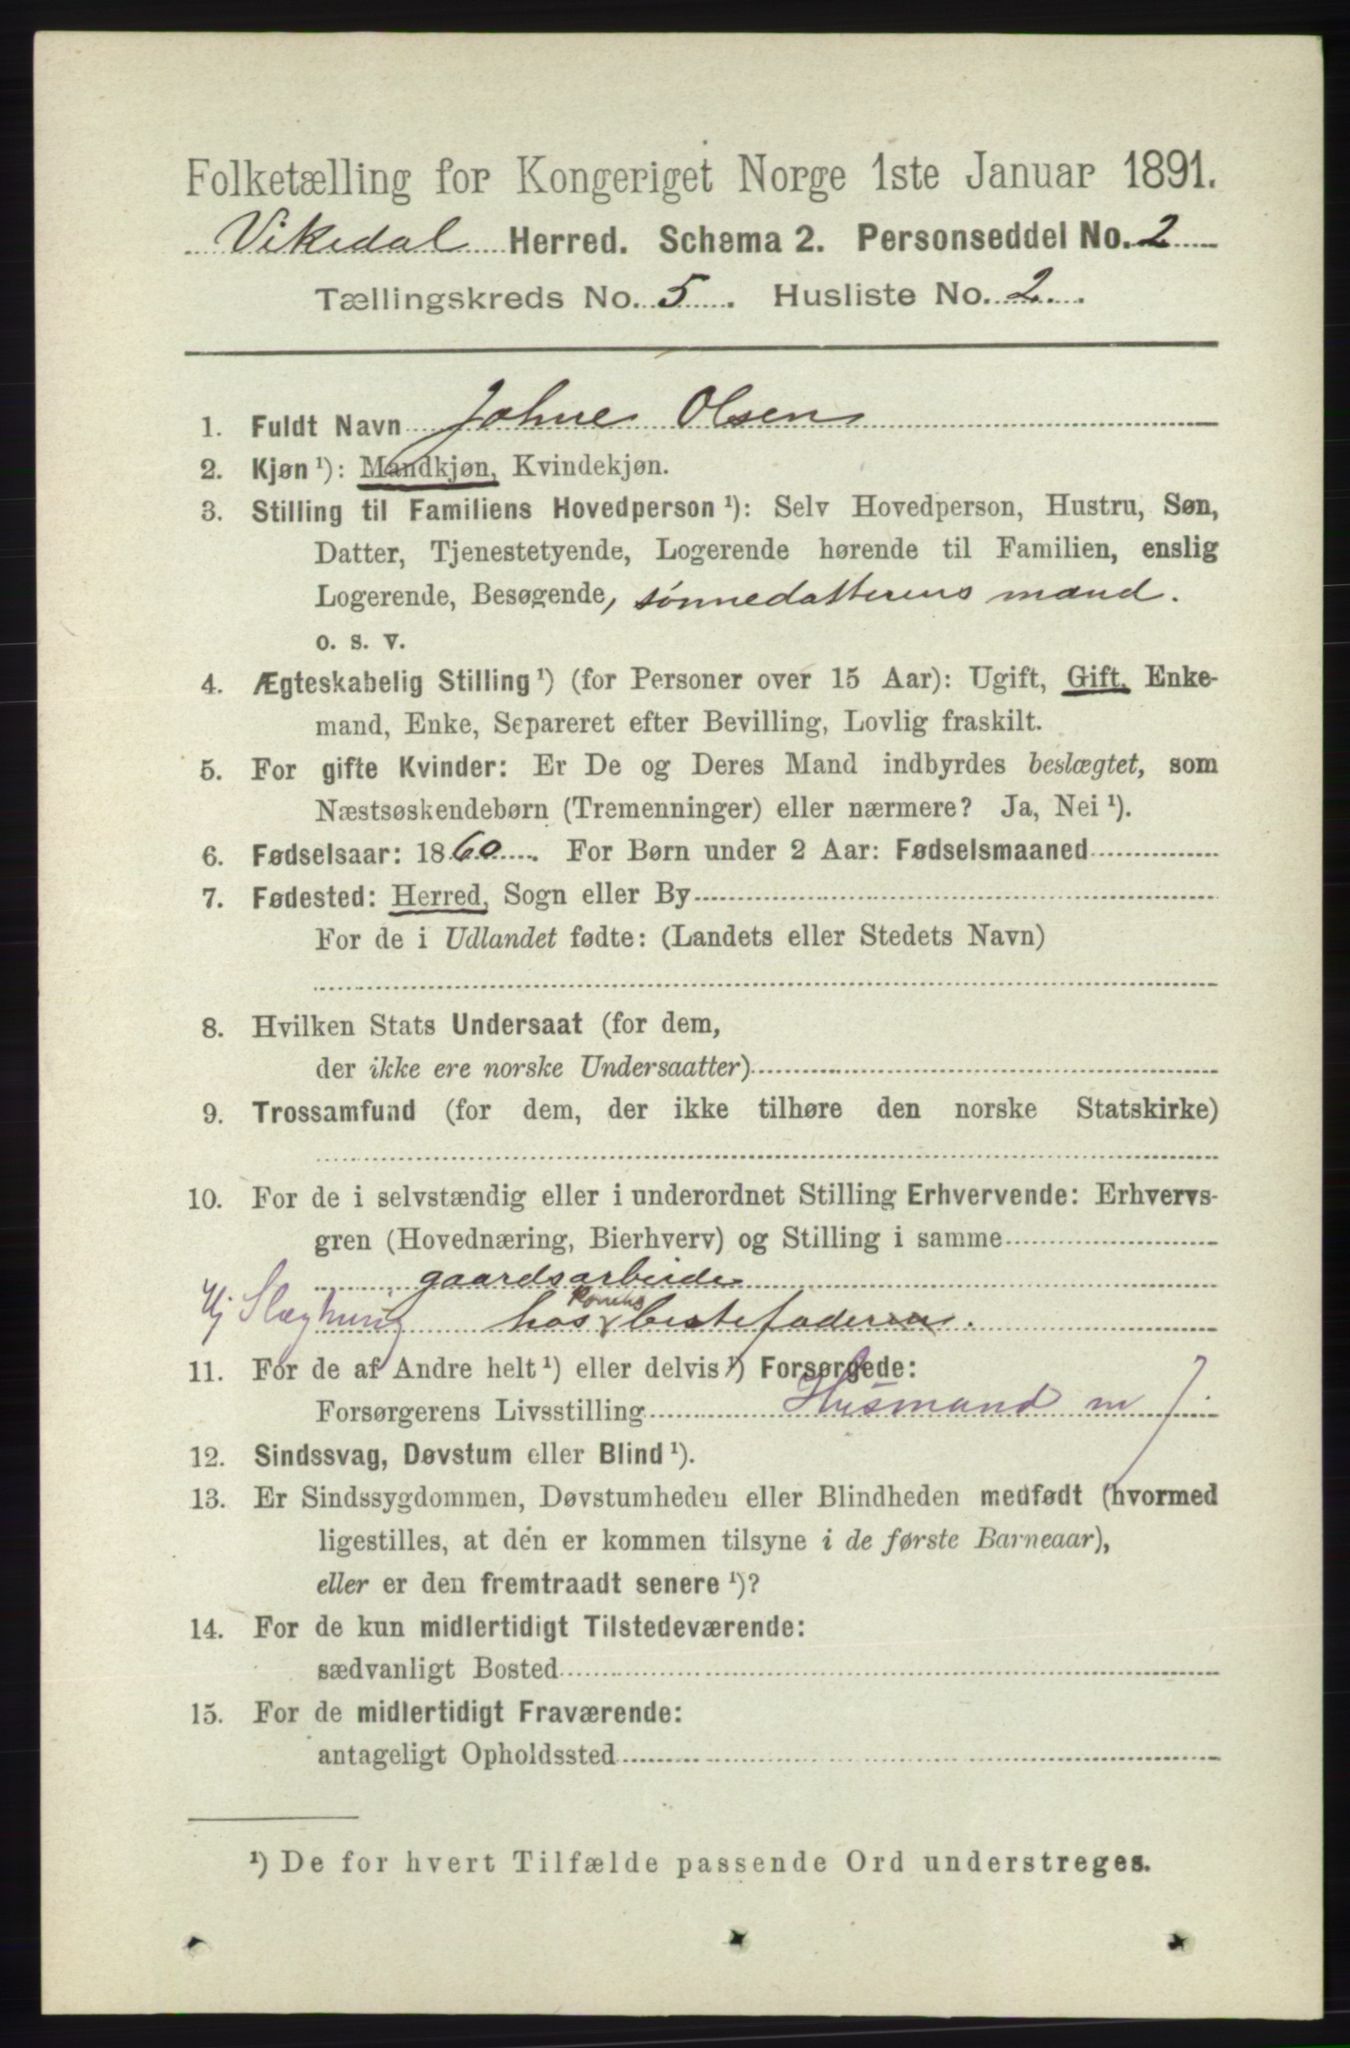 Folketælling for Kongeriget Norge 1ste Januar 1891.
Vikedal Herred. Schema 2. Personseddel No. 2
Tællingskreds No. 5. Husliste No. 2.
1. Fuldt Navn Johne Olsen
2. Kjøn ¹): Mandkjøn, Kvindekjøn.
3. Stilling til Familiens Hovedperson ¹): Selv Hovedperson, Hustru, Søn,
Datter, Tjenestetyende, Logerende hørende til Familien, enslig
Logerende, Besøgende, sønnedatterens mand.
o. s. v.
4. Ægteskabelig Stilling ¹) (for Personer over 15 Aar): Ugift, Gift, Enke-
mand, Enke, Separeret efter Bevilling, Lovlig fraskilt.
5. For gifte Kvinder: Er De og Deres Mand indbyrdes beslægtet, som
Næstsøskendebørn (Tremenninger) eller nærmere? Ja, Nei ¹).
6. Fødselsaar: 1860. For Børn under 2 Aar: Fødselsmaaned
7. Fødested: Herred, Sogn eller By
For de i Udlandet fødte: (Landets eller Stedets Navn)
8. Hvilken Stats Undersaat (for dem,
der ikke ere norske Undersaatter)
9. Trossamfund (for dem, der ikke tilhøre den norske Statskirke)
10. For de i selvstændig eller i underordnet Stilling Erhvervende: Erhvervs-
gren (Hovednæring, Bierhverv) og Stilling i samme
gaardsarbeide
Hj Slægtning hos Konens bestefaderen.
11. For de af Andre helt ¹) eller delvis ¹) Forsørgede:
Forsørgerens Livsstilling Husmand m J.
12. Sindssvag, Døvstum eller Blind ¹).
13. Er Sindssygdommen, Døvstumheden eller Blindheden medfødt (hvormed
ligestilles, at den er kommen tilsyne i de første Barneaar),
eller er den fremtraadt senere ¹)?
14. For de kun midlertidigt Tilstedeværende:
sædvanligt Bosted
15. For de midlertidigt Fraværende:
antageligt Opholdssted
¹) De for hvert Tilfælde passende Ord understreges.